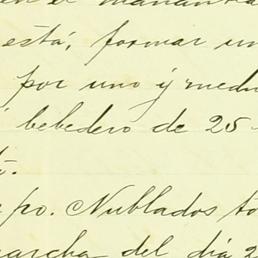 en el manantia
está, formar un
por uno y med
bebedero de 25
po. Nublados to
marcha del día 2